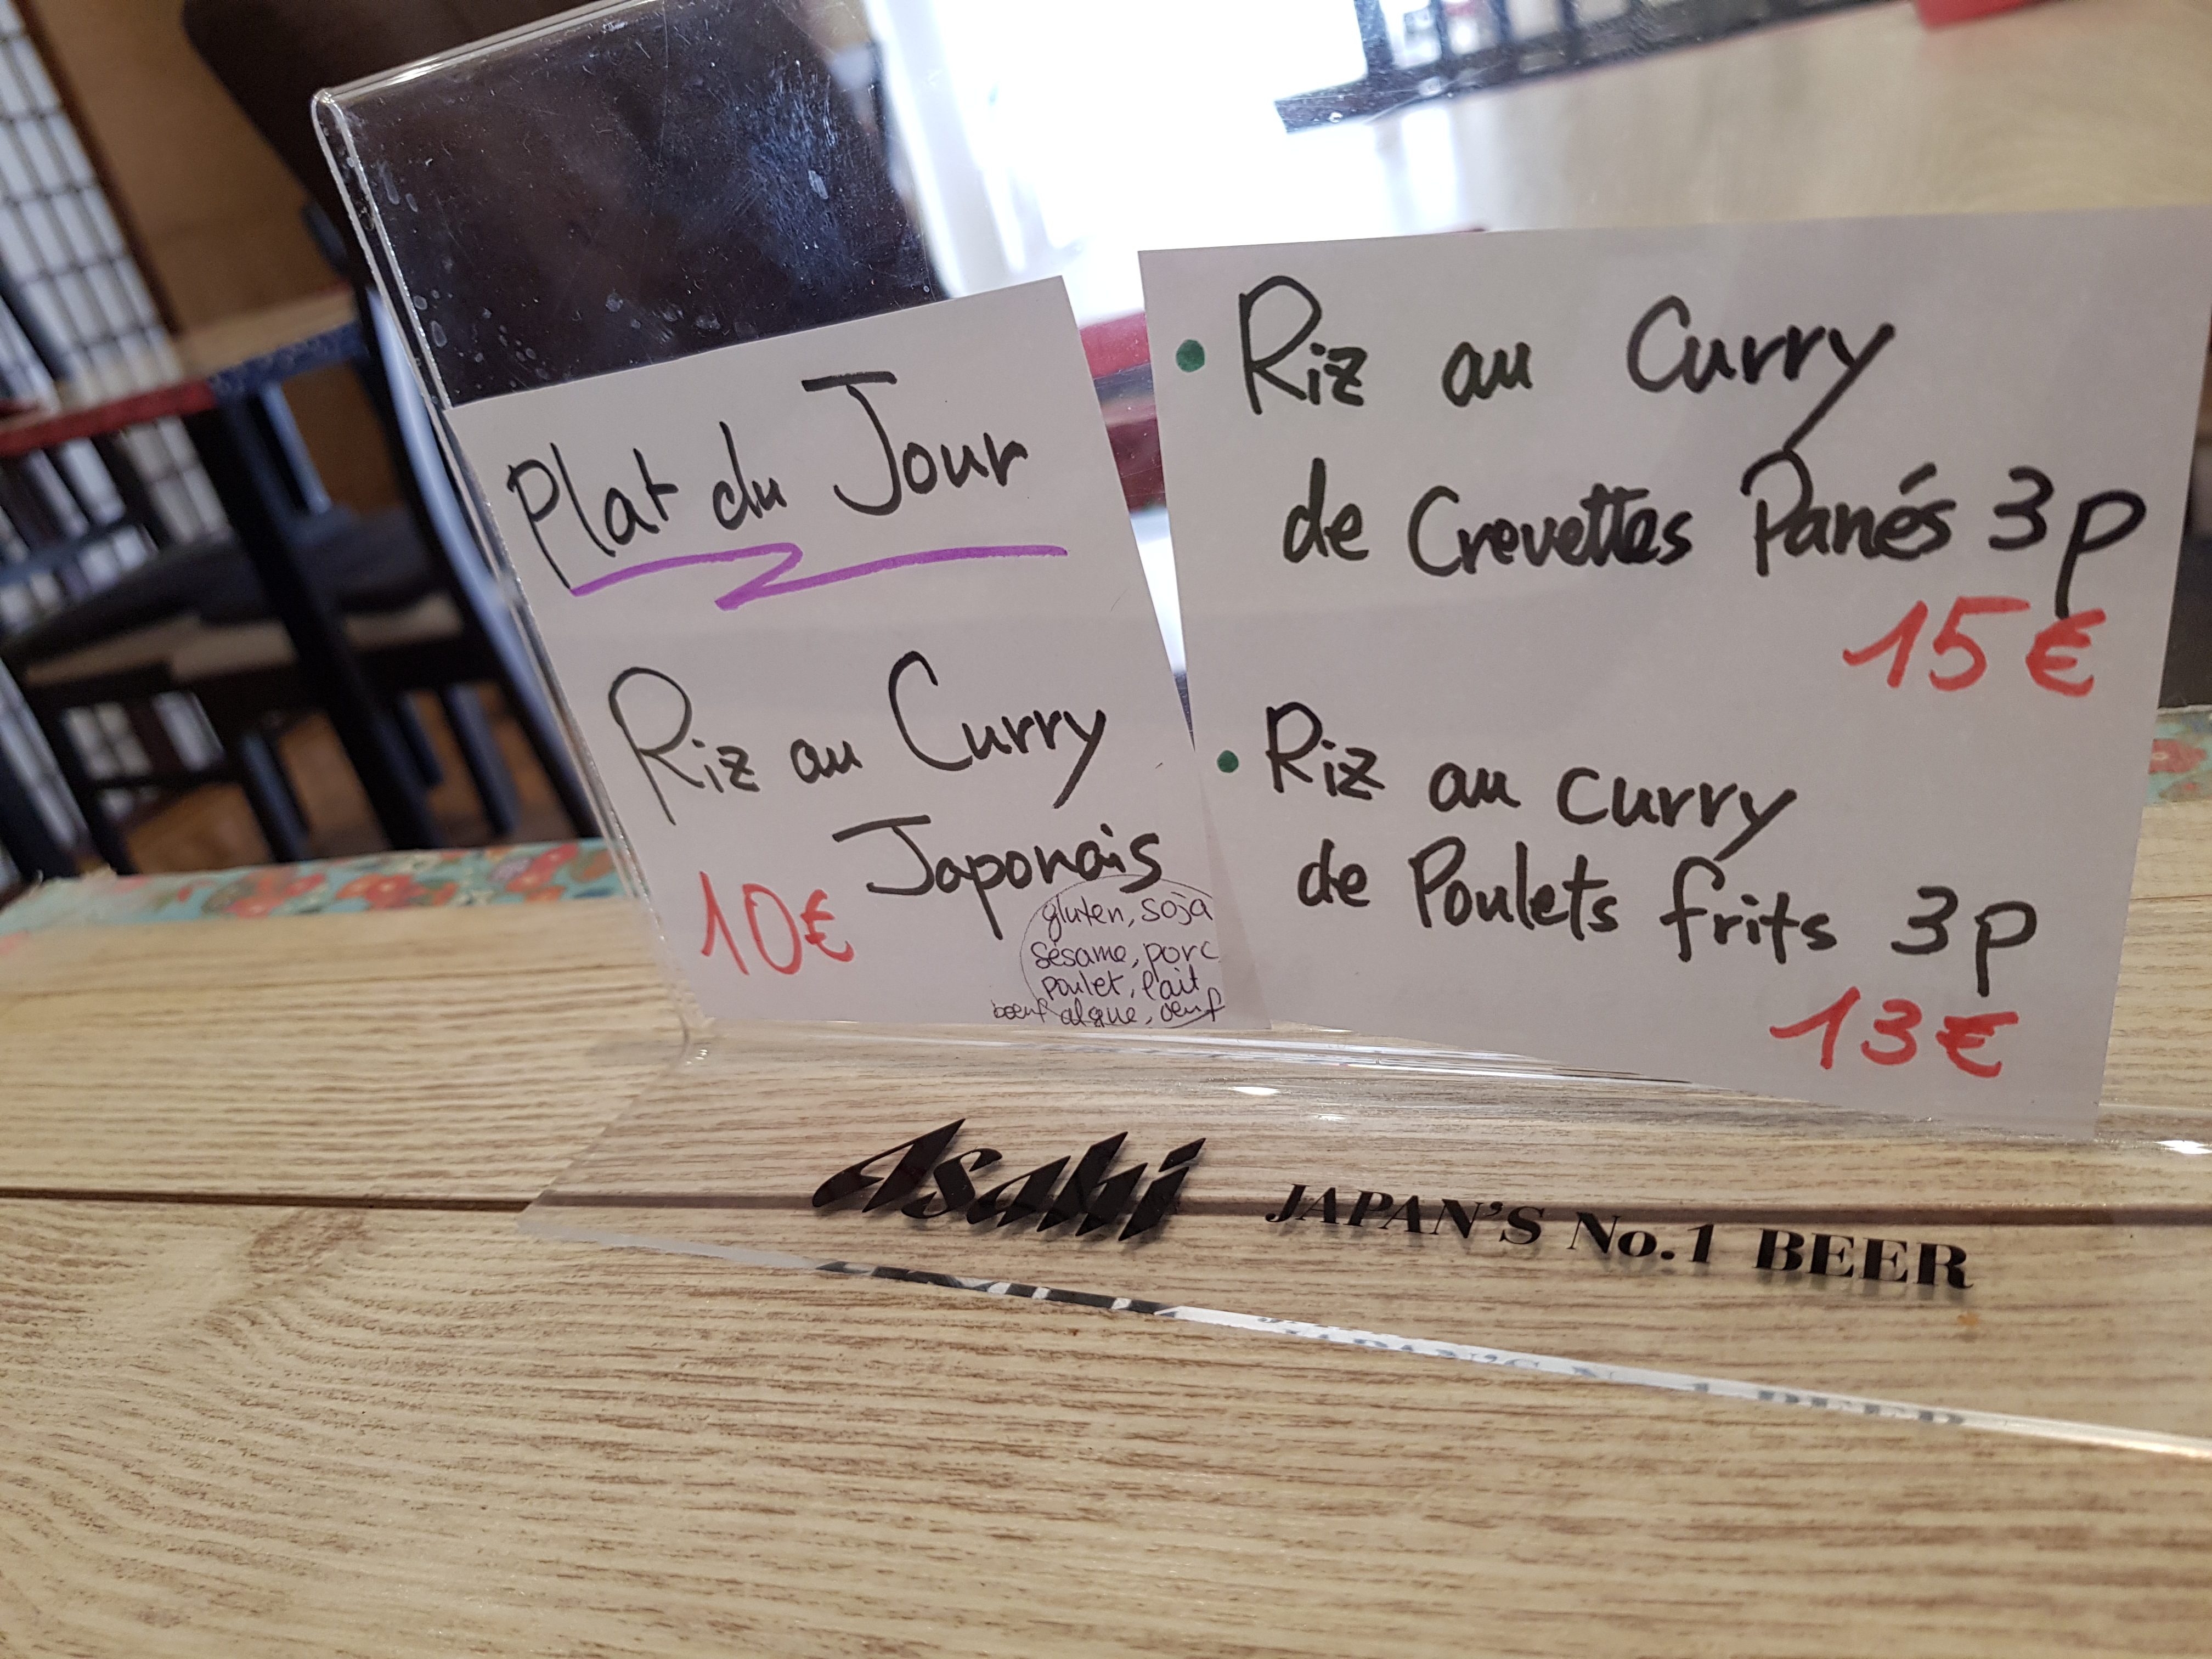 Plat du Jour
Riz au Curry
Japonais
10€
gluten, soja
sésame, porc
poulet, lait
boeuf algue, oeuf
• Riz au Curry
de Crevettes Panés 3p
15€
• Riz au curry
de Poulets frits 3p
13€
Asahi JAPAN'S No.1 BEER